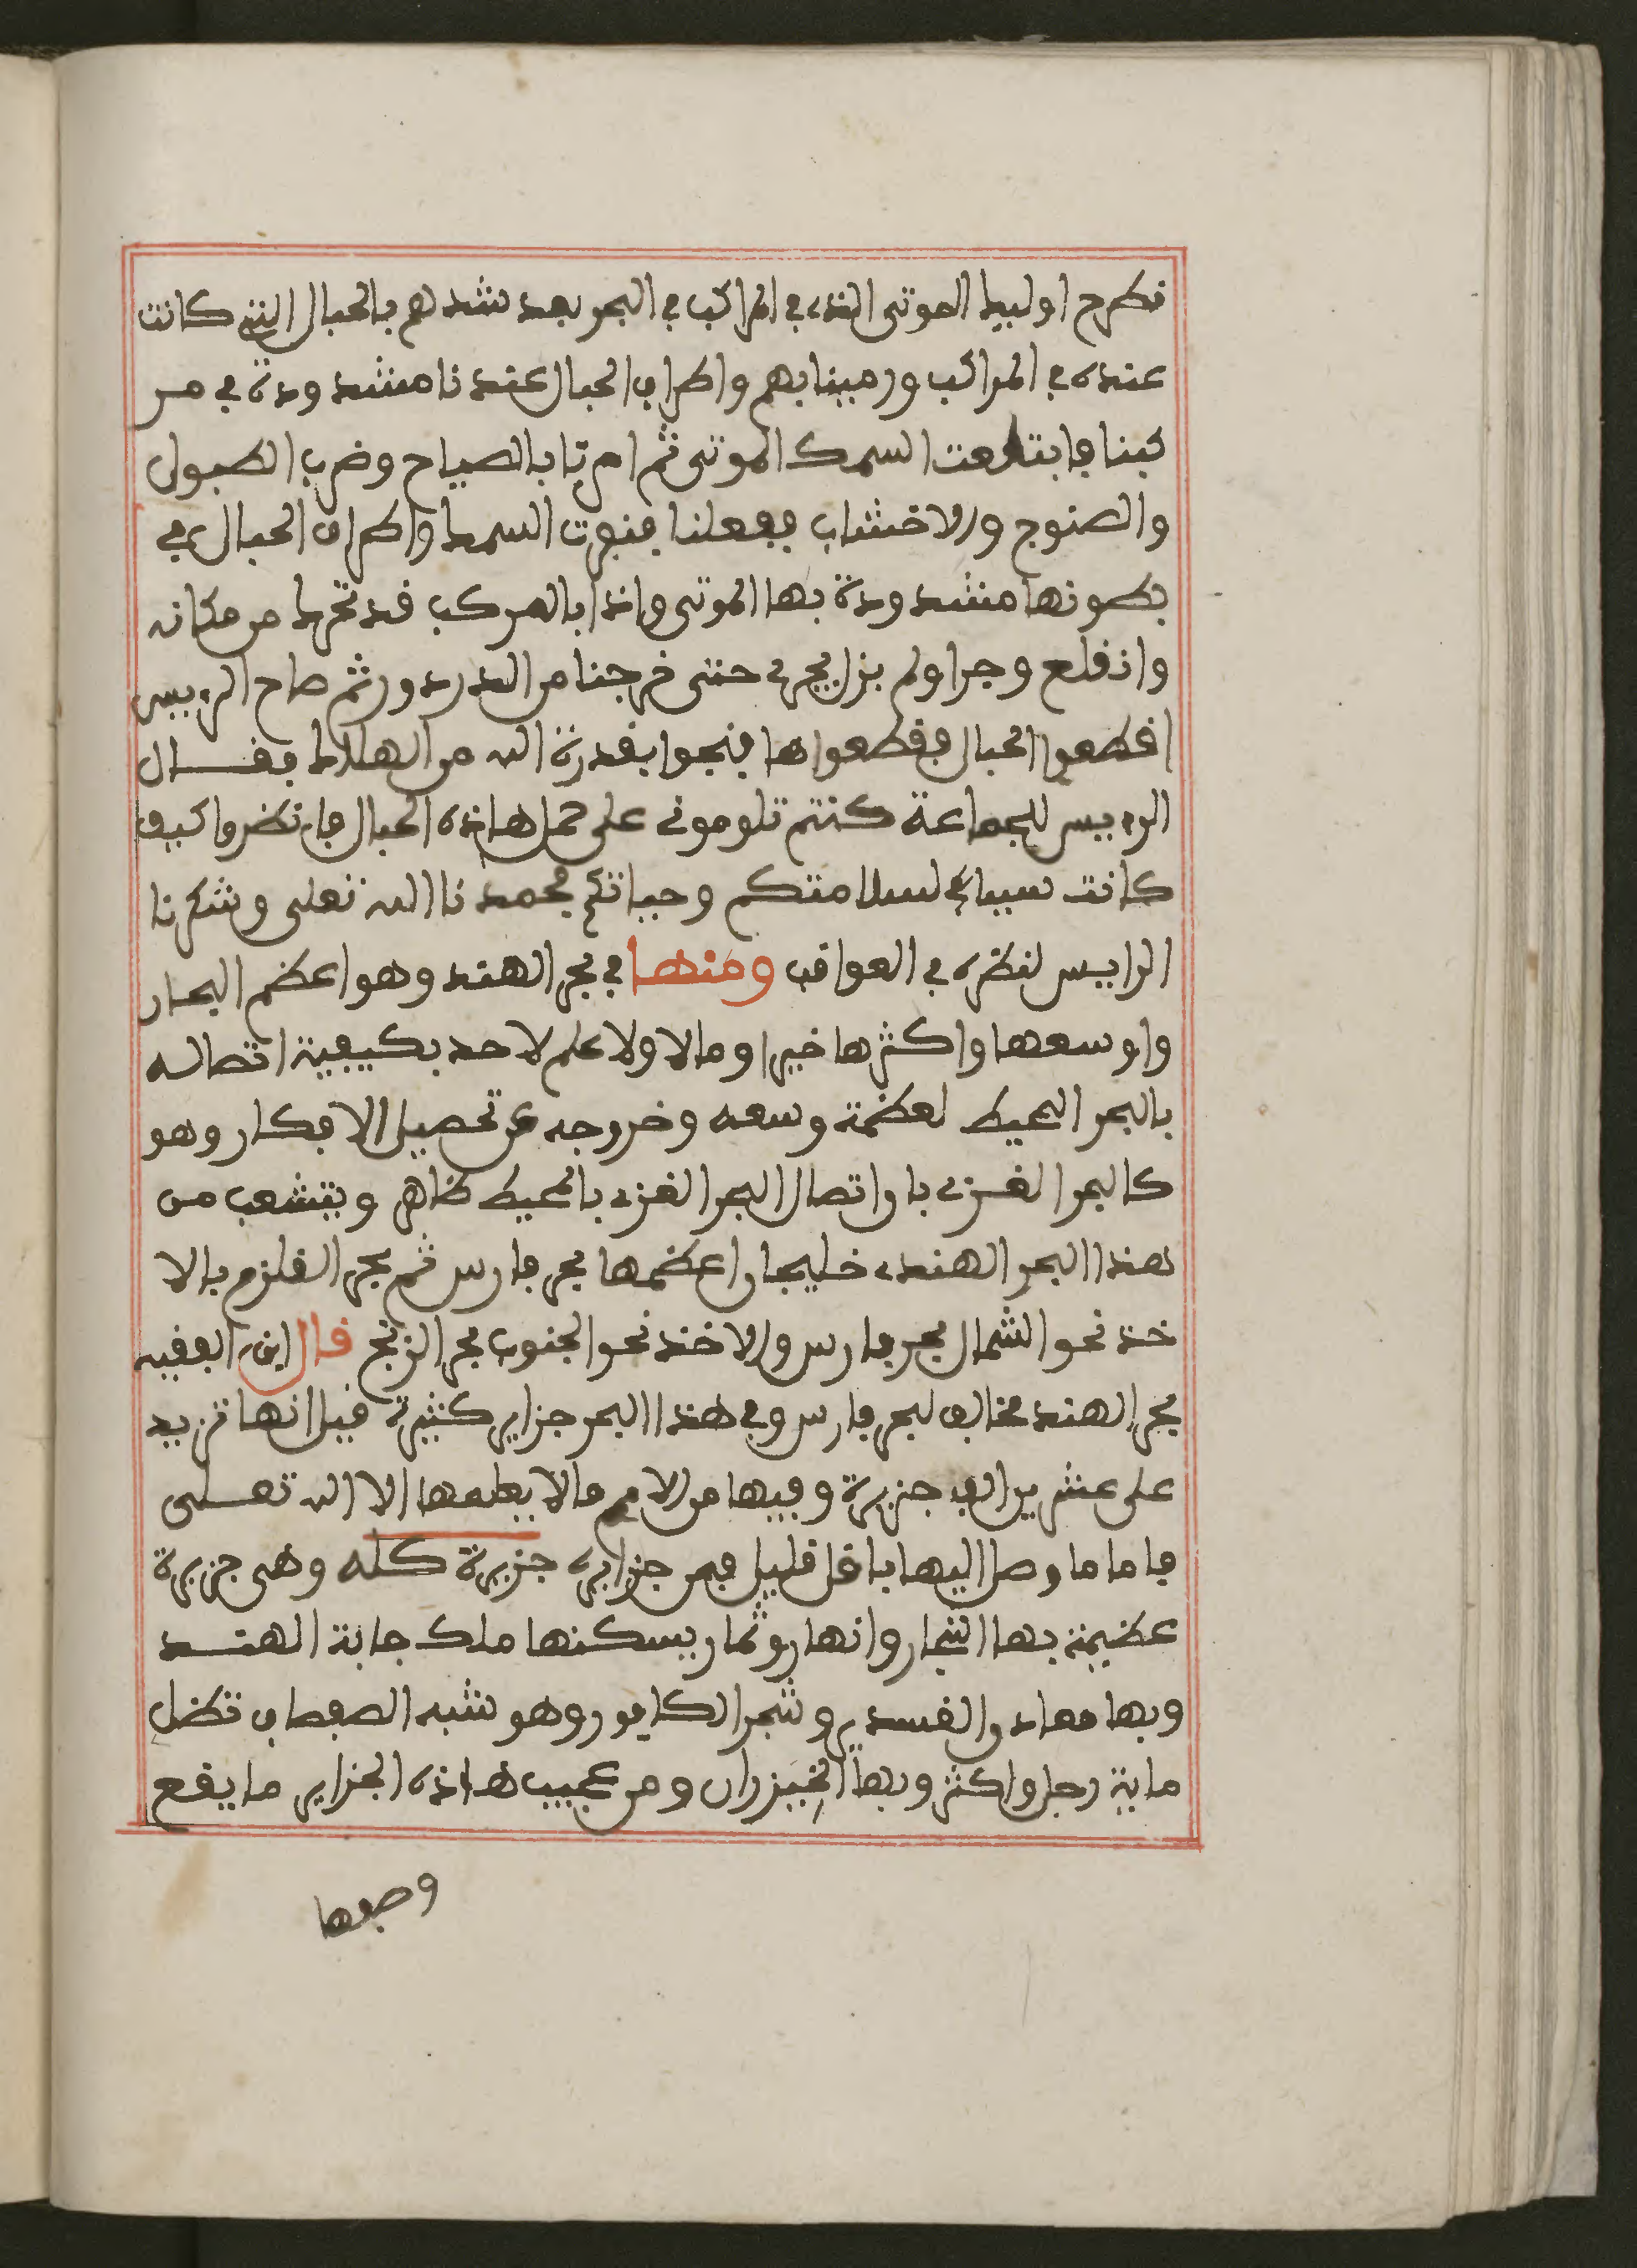 فطرح اوليك الموتى الذي في المراكب في البحر بعد شدهم بالحبال التي كانت
عنده في المراكب ورمينا بهم واطراف الحبال عندنا مشدودة في مر
كبنا فابتلعت السمك الموتى ثم امرنا بالصياح وضرب الطبول
والصنوج والاخشاب ففعلنا فنفرت السمك واطراف الحبال في
بطونها مشدودة بها الموتى واذا بالمركب قد تحرك من مكانه
وانقلع وجرا ولم يزل يجري حتى خرجنا من الدردور ثم صاح الرييس
اقطعوا الحبال فقطعواها فنجوا بقدرة الله من الهلاك فقال
الرييس للجماعة كنتم تلوموني على حمل هاذه الحبال فانظروا كيف
كانت سببا لسلامتكم وحياتكم فحمدنا الله تعلى وشكرنا
الرايس لنظره في العواقب ومنها في بحر الهند وهو اعظم البحار
واوسعها واكثرها خيرا ومالا ولا علم لاحد بكيفية اتصاله
بالبحر المحيط لعظمة وسعه وخروجه عن تحصيل الافكار وهو
كالبحر الغربي با واتصال البحر الغربي بالمحيط ظاهر ويتشعب من
هذا البحر الهندي خليجان اعظمها بحر فارس ثم بحر القلزم بالا
خذ نحو الشمال بحر فارس والاخذ نحو الجنوب بحر الزنج قال ابن الفقيه
بحر الهند مخالف لبحر فارس وفي هذا البحر جزاير كثيرة قيل انها تزيد
على عشرين الف جزيرة وفيها من الامم ما لا يعلمها الا الله تعلى
فاما ما وصل اليها باقل قليل فمن جزايره جزيرة كله وهي جزيرة
عظيمة بها اشجار وانهار وثمار يسكنها ملك جابة الهند
وبها معادن القسدير وشجر الكافور وهو شبه الصفصاف تظل
ماية رجل واكثر وبها الخيزران ومن عجيب هاذه الجزاير ما يقع
وصفها